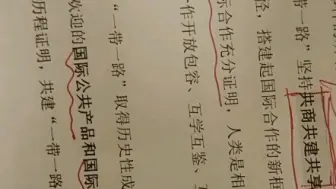 带一路”坚持共商共建共享
径，搭建起国际合作的新框
际合作充分证明，人类是相
作开放包容、互学互鉴、
“一带一路”取得历史性成
欢迎的国际公共产品和国际
历程证明，共建“一带一路